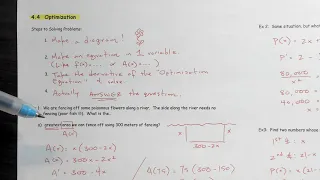 4.4 Optimization
Steps to Solving Problems:
1. Make a diagram!
2. Make an equation w/ 1 variable.
(Like f(x)... or A(x)...)
3. Take the derivative of the "Optimization
Equation"
4. Actually ANSWER the question.
We are fencing off some poisonous flowers along a river. The side along the river needs no
fencing (poor fish !!). What is the...
a) greatest area we can fence off using 300 meters of fencing?
A(x)
x
x
300-2x
A(x) = x(300-2x)
A(x) = 300x-2x²
A' = 300-4x
A(75) = 75(300-150)
Ex 2: Same situation, but what
P(x) = 2x
80,000
80,000
Ex3: Find two numbers whose
1st #: x
P(x) = x